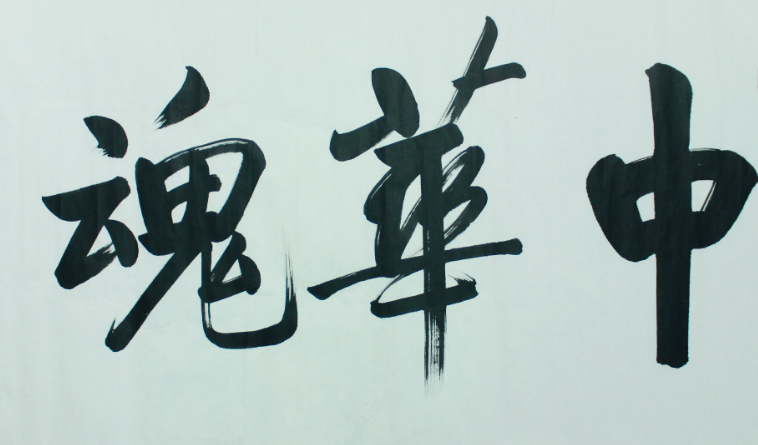 中華魂